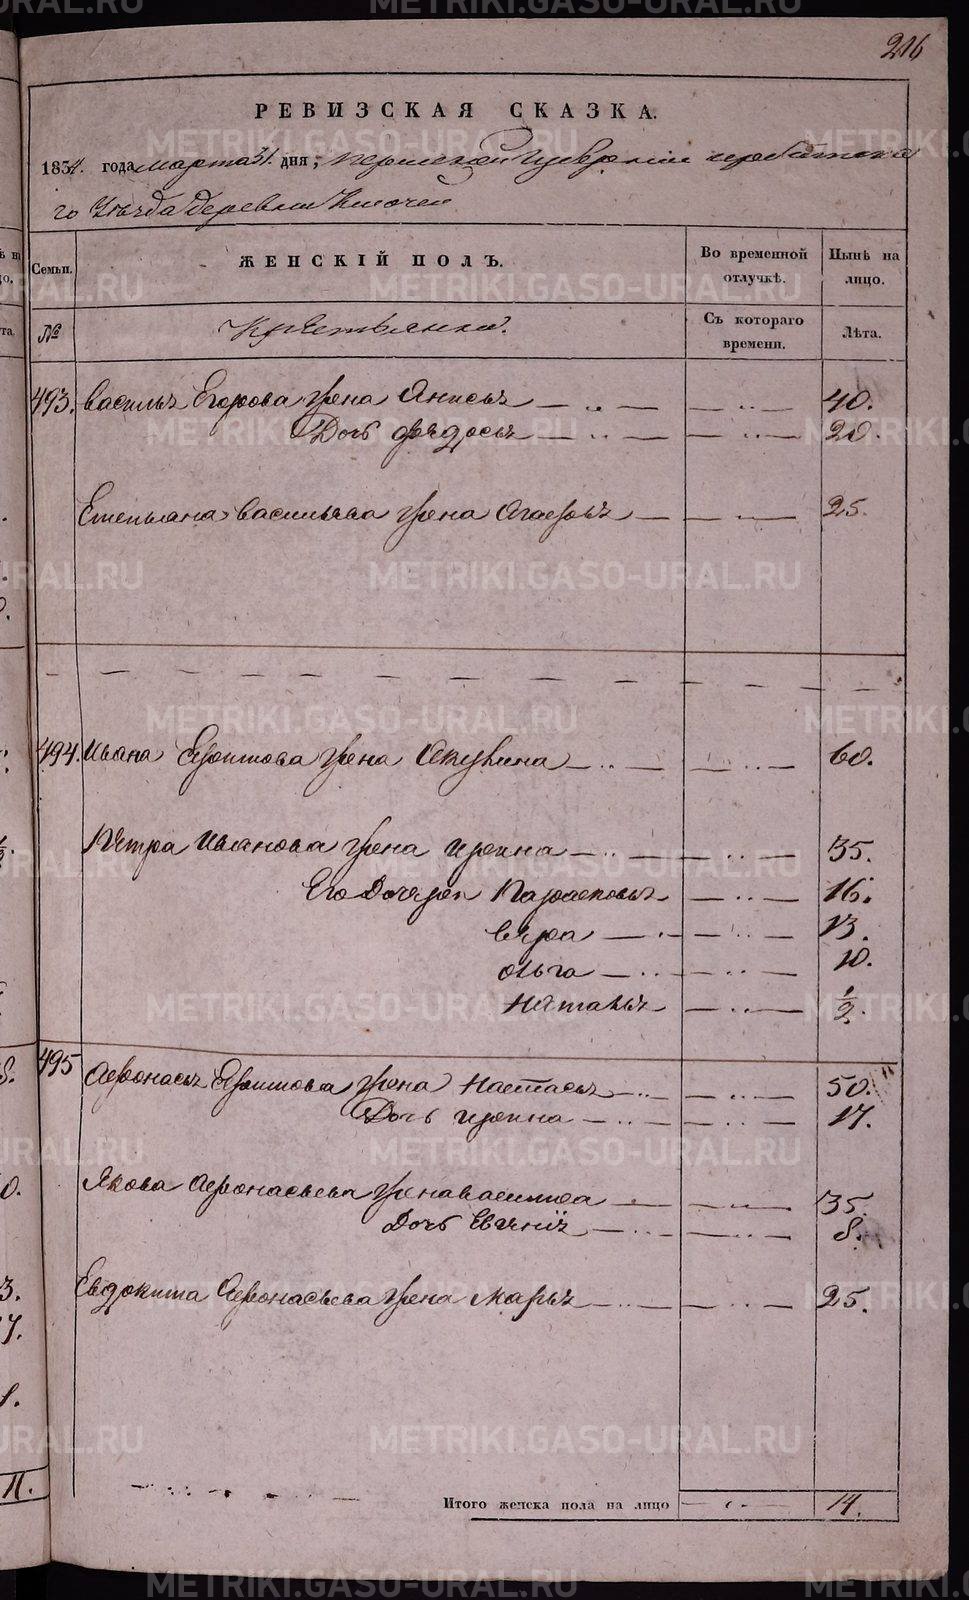 216
РЕВИЗСКАЯ СКАЗКА.
1834. года марта 31. дня, Пермской Губернии ирбитска
го Уѣзда деревни Ключей
Семьи.
ЖЕНСКІЙ ПОЛЪ.
Во временной отлучкѣ.
Нынѣ на лицо.
№
Крестьянки.
Съ котораго времени.
Лѣта.
493. Василья Егорова жена Анисья — „ — — „ — 40.
Дочь Федосья — „ — — „ — 20.
Степьана Васильева жена Агафья — — „ — 25.
494. Ивана Ефимова жена Акулина — „ — — „ — 60.
Петра Иванова жена ирина — „ — — „ — 35.
Его Дочери Парасковья — „ — 16.
Вера — „ — — „ — 13.
ольга — „ — — „ — 10.
Наталья — „ — 1/2.
495 Афонасья Ефимова жена Настасья — „ — — „ — 50.
Дочь ирина — „ — — „ — 17.
Якова Афонасьева жена василиса — „ — — „ — 35.
Дочь Евгенія — „ — — „ — 8.
Евдокима Афонасьева жена Марья — „ — — „ — 25.
Итого женска пола на лицо — „ — 14.
METRIKI.GASO-URAL.RU